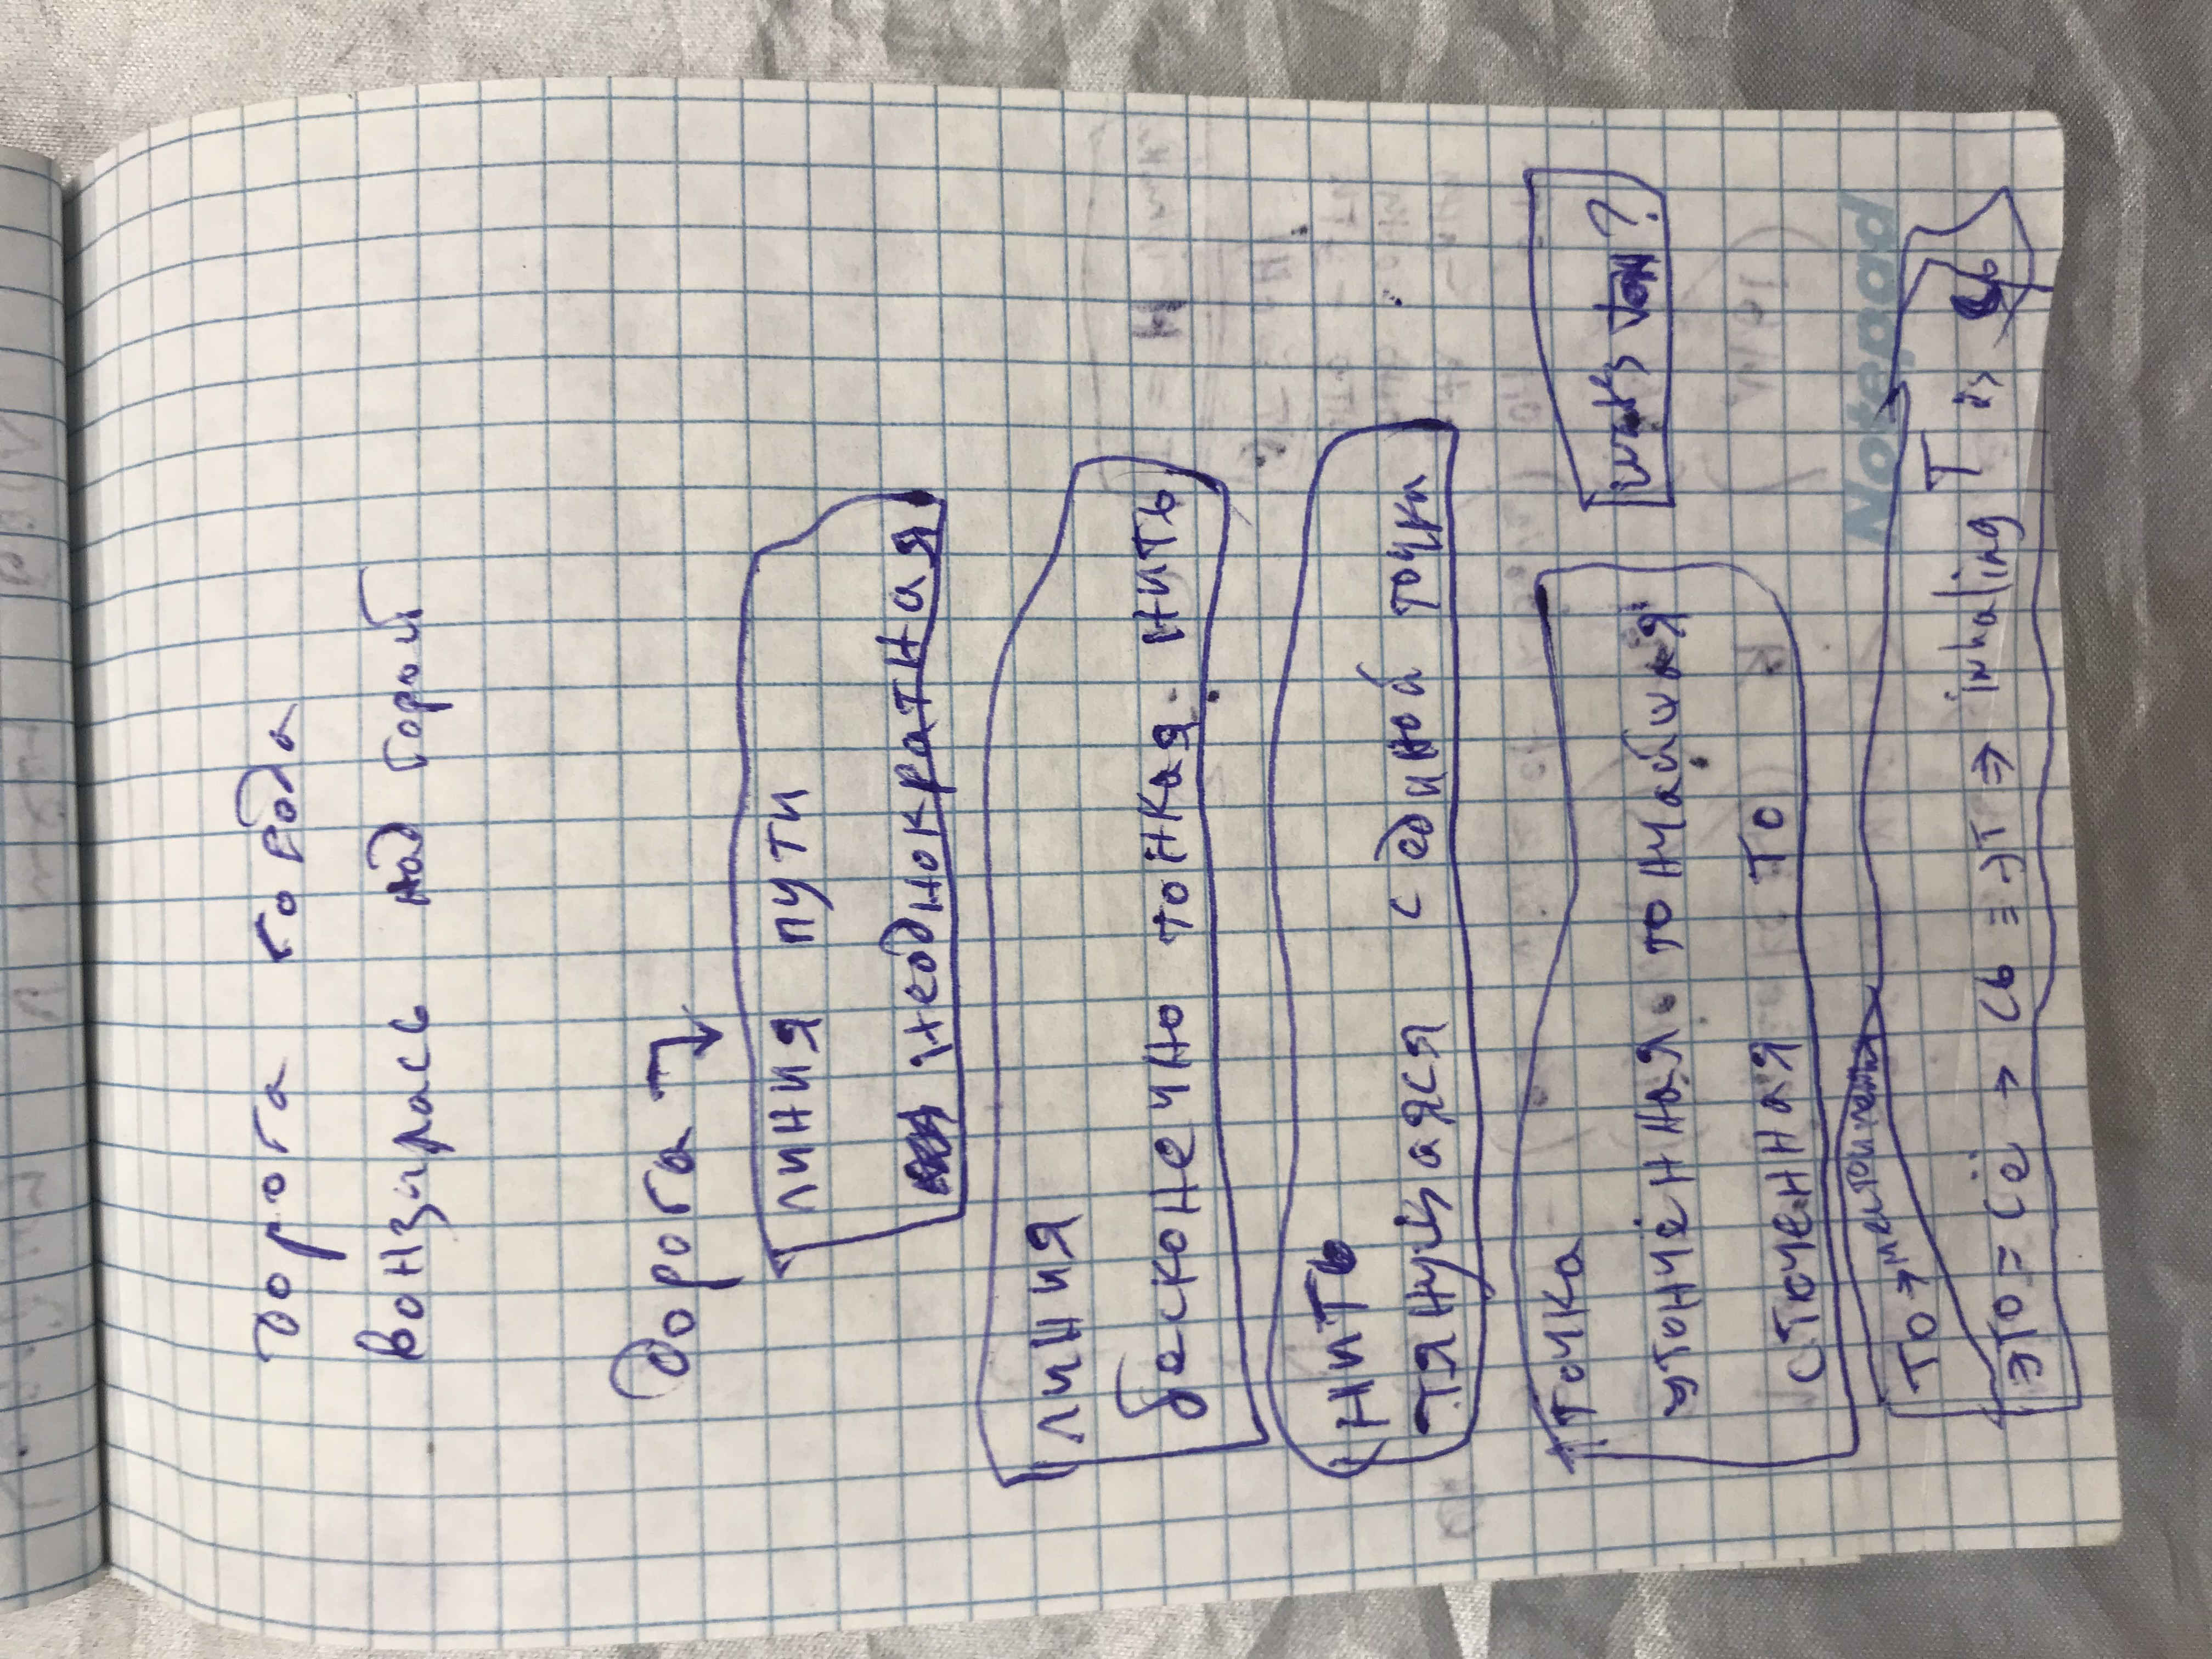 дорога города
вонзирась над горой
дорога
линия пути
неоднократная
линия
басконечно тонкая нить
нить
тянущаяся с единой точки
точка
утончённая тончайшая
сточенная то
what's ton?
то → местоимение
это = сё → сь = эт → inhaling T is сь
Notepad